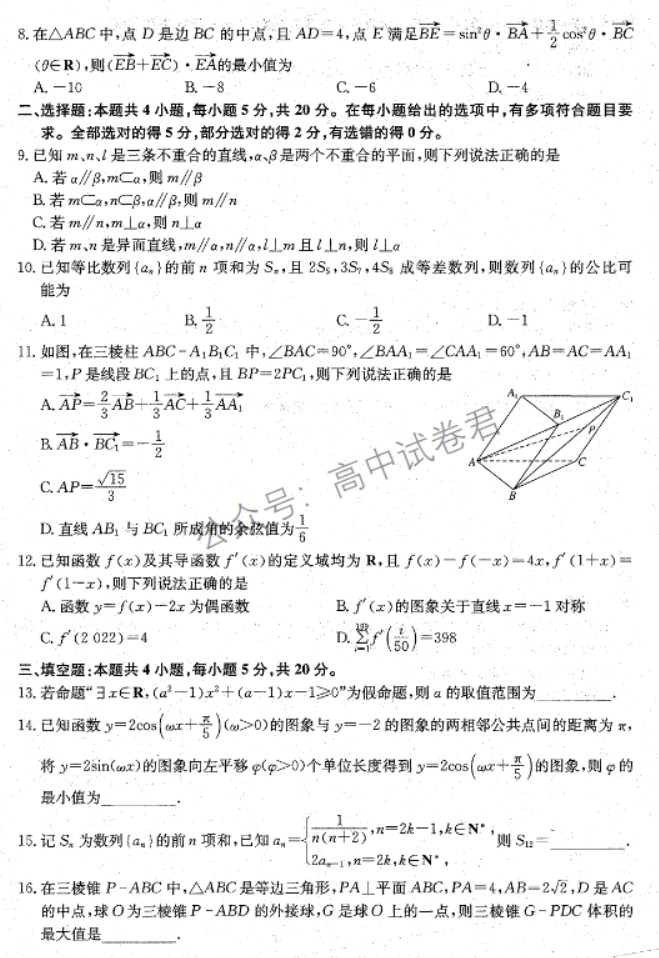 8. 在△ABC 中,点 D 是边 BC 的中点,且 AD=4,点 E 满足$\overrightarrow{BE}=\sin^2\theta\cdot\overrightarrow{BA}+\frac{1}{2}\cos^2\theta\cdot\overrightarrow{BC}$
(θ∈R),则$(\overrightarrow{EB}+\overrightarrow{EC})\cdot\overrightarrow{EA}$的最小值为
A. -10 B. -8 C. -6 D. -4
二、选择题:本题共 4 小题,每小题 5 分,共 20 分。在每小题给出的选项中,有多项符合题目要
求。全部选对的得 5 分,部分选对的得 2 分,有选错的得 0 分。
9. 已知 m、n、l 是三条不重合的直线,α、β是两个不重合的平面,则下列说法正确的是
A. 若 α∥β,m⊂α,则 m∥β
B. 若 m⊂α,n⊂β,α∥β,则 m∥n
C. 若 m∥n,m⊥α,则 n⊥α
D. 若 m、n 是异面直线,m∥α,n∥α,l⊥m 且 l⊥n,则 l⊥α
10. 已知等比数列{$a_n$}的前 n 项和为 $S_n$,且 $2S_5,3S_7,4S_8$ 成等差数列,则数列{$a_n$}的公比可
能为
A. 1 B. $\frac{1}{2}$ C. $-\frac{1}{2}$ D. -1
11. 如图,在三棱柱 ABC-A₁B₁C₁ 中,∠BAC=90°,∠BAA₁=∠CAA₁=60°,AB=AC=AA₁
=1,P 是线段 BC₁ 上的点,且 BP=2PC₁,则下列说法正确的是
A. $\overrightarrow{AP}=\frac{2}{3}\overrightarrow{AB}+\frac{1}{3}\overrightarrow{AC}+\frac{1}{3}\overrightarrow{AA_1}$
B. $\overrightarrow{AB}\cdot\overrightarrow{BC_1}=-\frac{1}{2}$
C. $AP=\frac{\sqrt{15}}{3}$
D. 直线 AB₁ 与 BC₁ 所成角的余弦值为$\frac{1}{6}$
A₁
C₁
B₁
P
A
C
B
公众号:高中试卷君
12. 已知函数 f(x)及其导函数 f′(x)的定义域均为 R,且 f(x)-f(-x)=4x,f′(1+x)=
f′(1-x),则下列说法正确的是
A. 函数 y=f(x)-2x 为偶函数 B. f′(x)的图象关于直线 x=-1 对称
C. f′(2 022)=4 D. $\sum_{i=1}^{199}f'\left(\frac{i}{50}\right)=398$
三、填空题:本题共 4 小题,每小题 5 分,共 20 分。
13. 若命题“∃x∈R,(a²-1)x²+(a-1)x-1⩾0”为假命题,则 a 的取值范围为________.
14. 已知函数 $y=2\cos\left(\omega x+\frac{\pi}{5}\right)$(ω>0)的图象与 y=-2 的图象的两相邻公共点间的距离为 π,
将 y=2sin(ωx)的图象向左平移 φ(φ>0)个单位长度得到 $y=2\cos\left(\omega x+\frac{\pi}{5}\right)$的图象,则 φ 的
最小值为________.
15. 记 $S_n$ 为数列{$a_n$}的前 n 项和,已知 $a_n=\begin{cases}\frac{1}{n(n+2)},n=2k-1,k\in\mathbf{N}^*,\\2a_{n-1},n=2k,k\in\mathbf{N}^*,\end{cases}$ 则 $S_{12}$=________.
16. 在三棱锥 P-ABC 中,△ABC 是等边三角形,PA⊥平面 ABC,PA=4,AB=2√2,D 是 AC
的中点,球 O 为三棱锥 P-ABD 的外接球,G 是球 O 上的一点,则三棱锥 G-PDC 体积的
最大值是________.